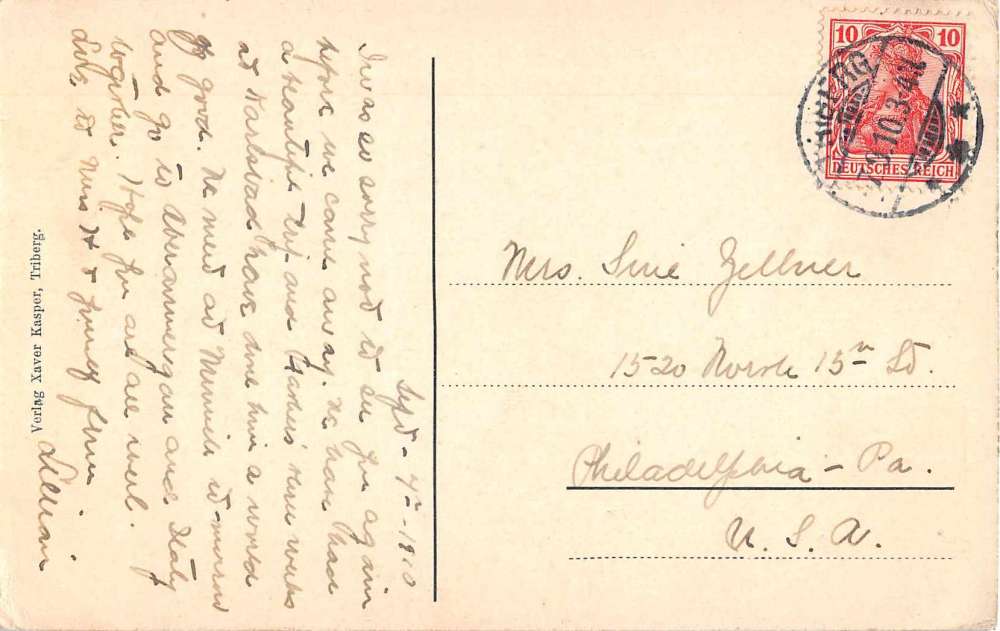 Sept - 1910
I was so sorry not to see you again
before we came away. We have had
a beautiful trip and three weeks
at Karlsbad have done him a world
of good. We meet at Munich to-morrow
and go to Oberammergau and Italy
together. Hope you are all well.
Love to Miss H & yourself from
Lillian
Verlag Xaver Kasper, Triberg.
10 10
DEUTSCHES REICH
TRIBERG
7.9.10.3-4N.
Mrs. Sine Zellner
1520 North 15th St.
Philadelphia - Pa.
U. S. A.